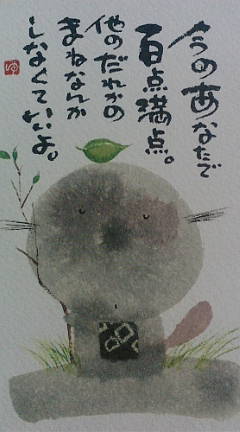 今のあなたで
百点満点。
他のだれかの
まねなんか
しなくていいよ。
ゆ